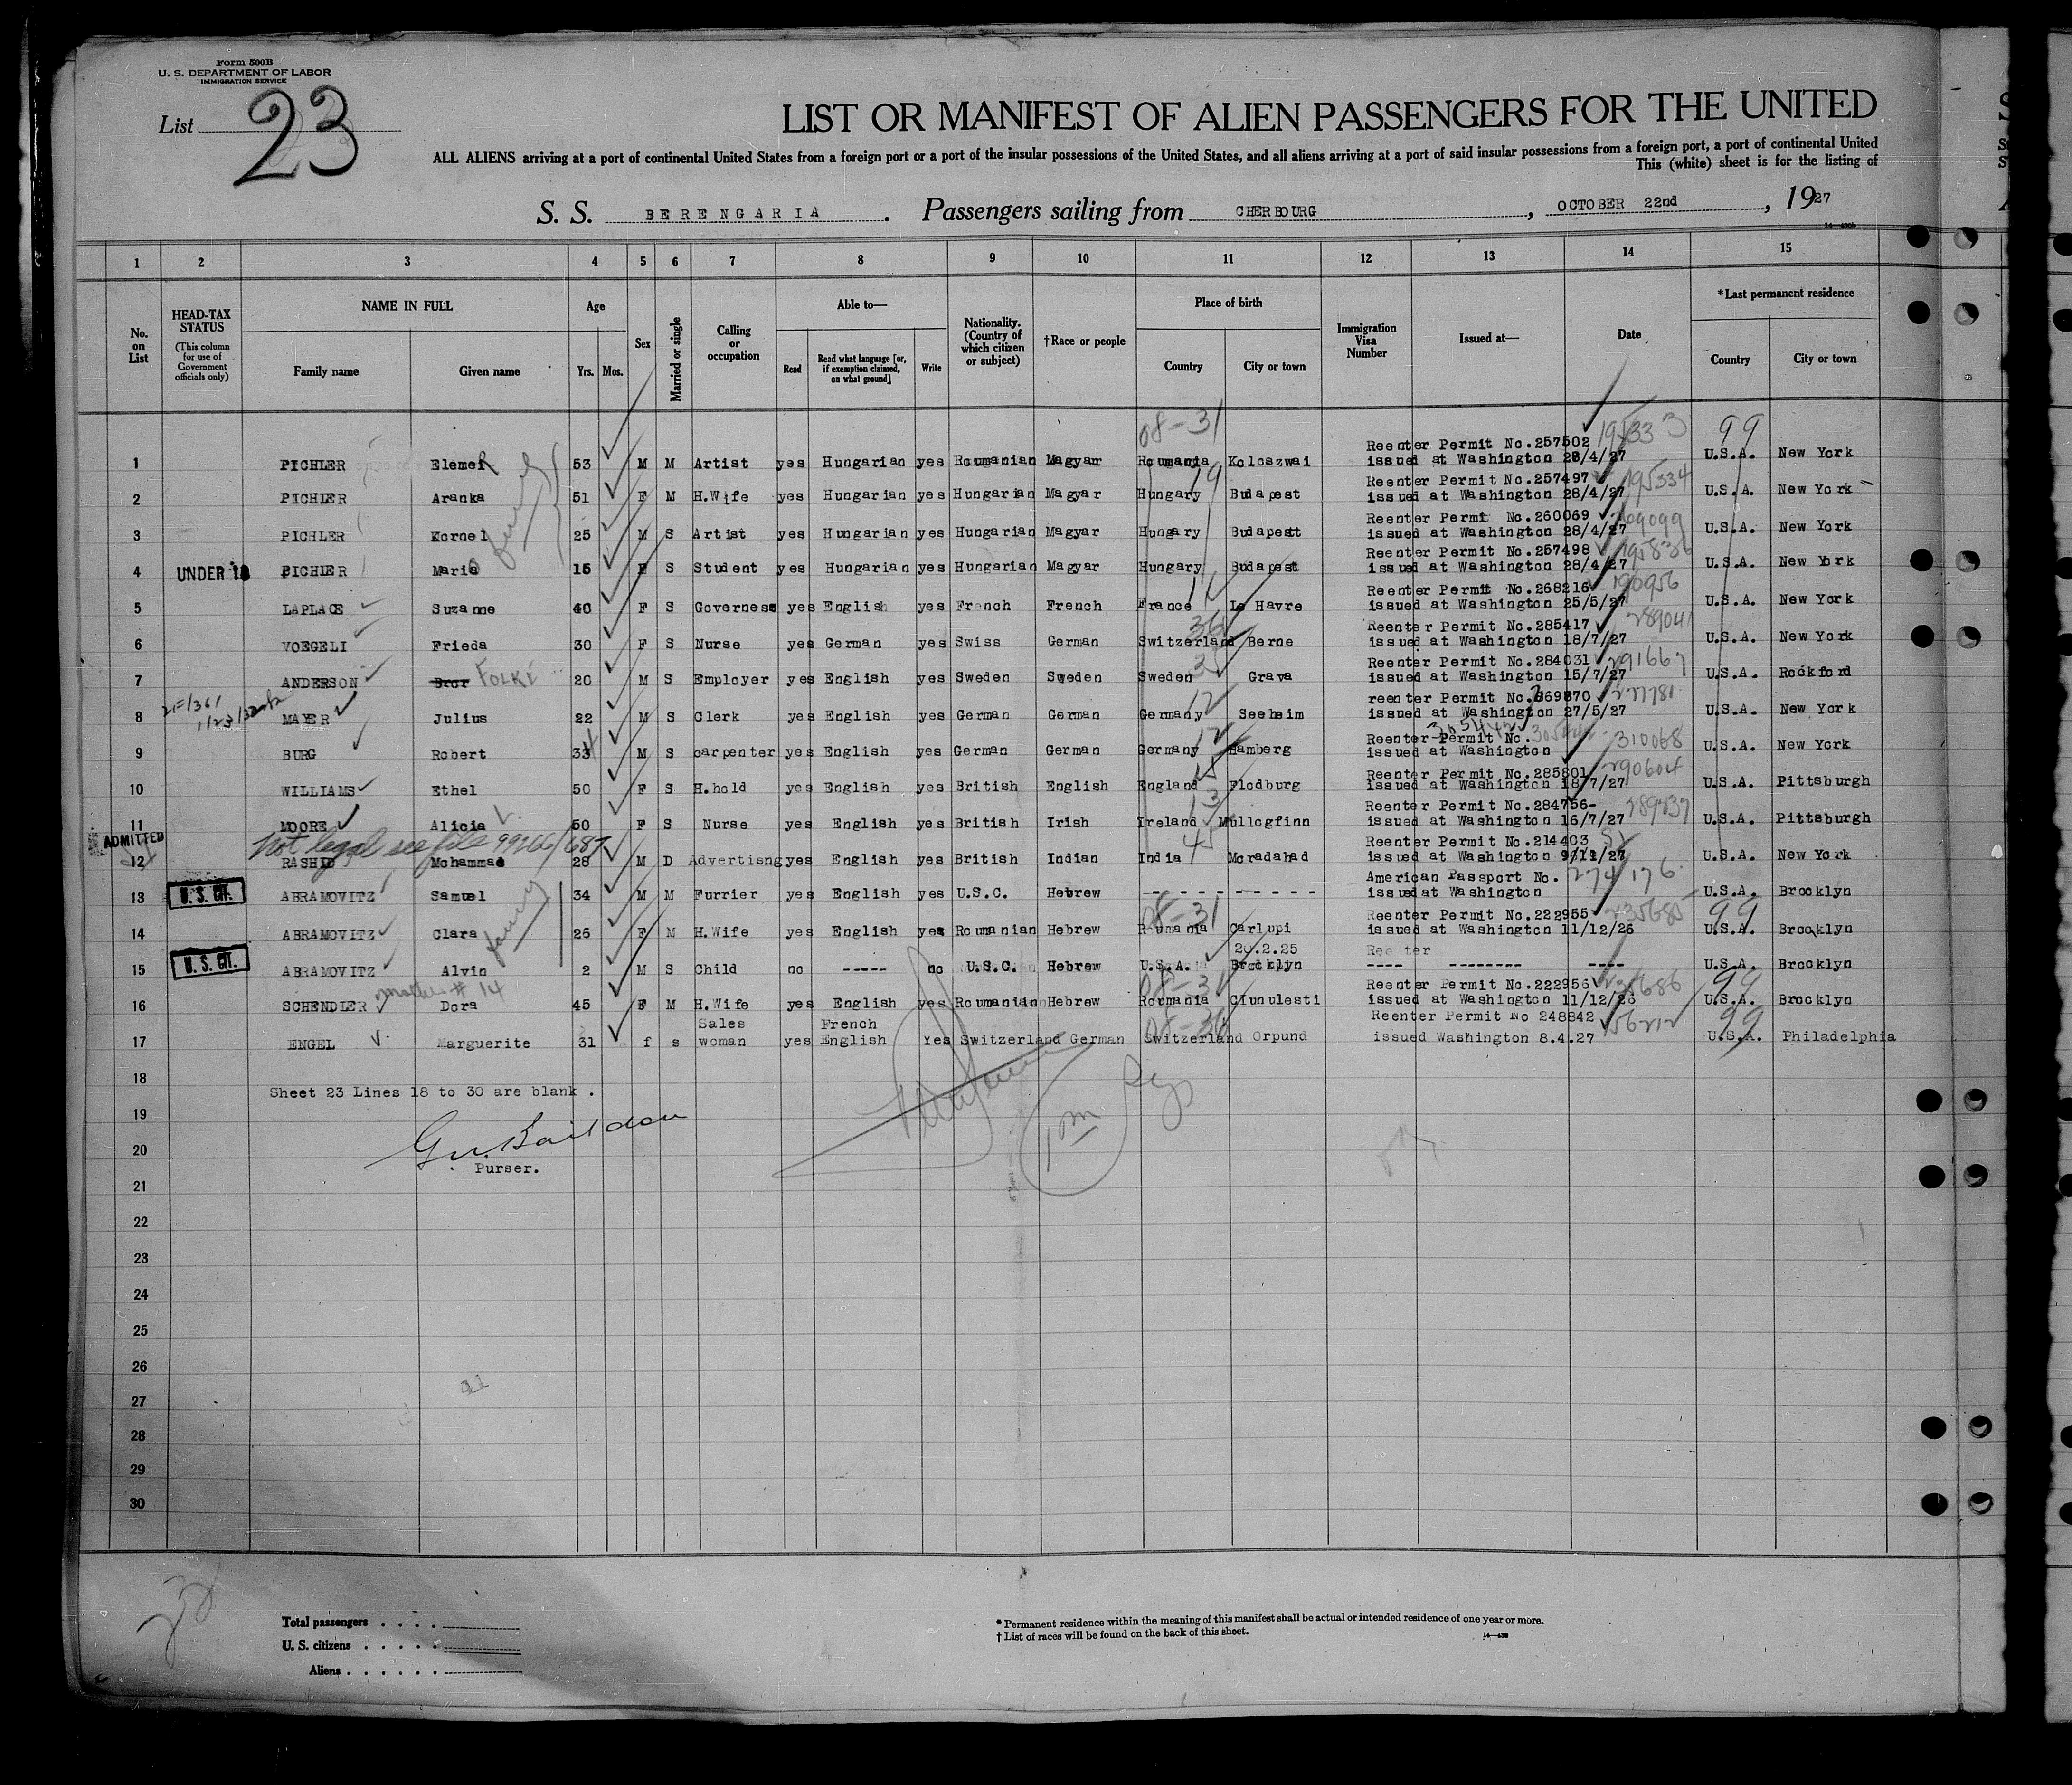 Form 500B
U. S. DEPARTMENT OF LABOR
IMMIGRATION SERVICE
List 23
LIST OR MANIFEST OF ALIEN PASSENGERS FOR THE UNITED
ALL ALIENS arriving at a port of continental United States from a foreign port or a port of the insular possessions of the United States, and all aliens arriving at a port of said insular possessions from a foreign port, a port of continental United
This (white) sheet is for the listing of
S. S. BERENGARIA. Passengers sailing from CHERBOURG, OCTOBER 22nd, 1927
1 2 3 4 5 6 7 8 9 10 11 12 13 14 15
No. on List
HEAD-TAX STATUS
(This column for use of Government officials only)
NAME IN FULL
Family name Given name
Age
Yrs. Mos.
Sex
Married or single
Calling or occupation
Able to—
Read Read what language [or, if exemption claimed, on what ground] Write
Nationality. (Country of which citizen or subject)
†Race or people
Place of birth
Country City or town
Immigration Visa Number
Issued at—
Date
*Last permanent residence
Country City or town
08-31 99
Reenter Permit No.257502 195333
1 PICHLER Elemer 53 M M Artist yes Hungarian yes Roumanian Magyar Roumania Koloszwai issued at Washington 28/4/27 U.S.A. New York
Reenter Permit No.257497 195334
2 PICHLER Aranka 51 F M H.Wife yes Hungarian yes Hungarian Magyar Hungary Budapest issued at Washington 28/4/27 U.S.A. New York
Reenter Permit No.260069
3 PICHLER Kornel 25 M S Artist yes Hungarian yes Hungarian Magyar Hungary Budapest issued at Washington 28/4/27 U.S.A. New York
Reenter Permit No.257498
4 UNDER 18 PICHLER Maria 15 F S Student yes Hungarian yes Hungarian Magyar Hungary Budapest issued at Washington 28/4/27 U.S.A. New York
Reenter Permit No.268216 190956
5 LAPLACE Suzanne 40 F S Governess yes English yes French French France Le Havre issued at Washington 25/5/27 U.S.A. New York
Reenter Permit No.285417 289041
6 VOEGELI Frieda 30 F S Nurse yes German yes Swiss German Switzerland Berne issued at Washington 18/7/27 U.S.A. New York
Reenter Permit No.284031 291667
7 ANDERSON Bror FOLKE 20 M S Employer yes English yes Sweden Sweden Sweden Grava issued at Washington 15/7/27 U.S.A. Rockford
reenter Permit No. 277781
8 MAYER Julius 22 M S Clerk yes English yes German German Germany Seeheim issued at Washington 27/5/27 U.S.A. New York
Reenter Permit No. 310068
9 BURG Robert 33 M S carpenter yes English yes German German Germany Hamberg issued at Washington U.S.A. New York
Reenter Permit No.285801 290604
10 WILLIAMS Ethel 50 F S H.hold yes English yes British English England Flodburg issued at Washington 18/7/27 U.S.A. Pittsburgh
Reenter Permit No.284756-
11 MOORE Alicia 50 F S Nurse yes English yes British Irish Ireland Mullogfinn issued at Washington 16/7/27 U.S.A. Pittsburgh
ADMITTED not legal see file 99266/687
Reenter Permit No.214403
12 RASHID Mohammad 28 M D Advertisng yes English yes British Indian India Moradahad issued at Washington 9/11/26 U.S.A. New York
American Passport No. 274176
13 U. S. CIT. ABRAMOVITZ Samuel 34 M M Furrier yes English yes U.S.C. Hebrew ------------- issued at Washington U.S.A. Brooklyn
08-31 99
Reenter Permit No.222955 235685
14 ABRAMOVITZ Clara 26 F M H.Wife yes English yes Roumanian Hebrew Roumania Carlupi issued at Washington 11/12/26 U.S.A. Brooklyn
family
20.2.25
15 U. S. CIT. ABRAMOVITZ Alvin 2 M S Child no ----- no U.S.C. Hebrew U.S.A. Brooklyn ---- -------- ---- U.S.A. Brooklyn
mother # 14 08-31 99
Reenter Permit No.222956 235686
16 SCHENDLER Dora 45 F M H.Wife yes English yes Roumanian Hebrew Roumania Clunulesti issued at Washington 11/12/26 U.S.A. Brooklyn
Sales French 08-36 Reenter Permit No 248842 99
17 ENGEL Marguerite 31 f s woman yes English Yes Switzerland German Switzerland Orpund issued Washington 8.4.27 U.S.A. Philadelphia
18
Sheet 23 Lines 18 to 30 are blank .
19
20
Purser.
21
22
23
24
25
26
27
28
29
30
Total passengers
U. S. citizens
Aliens
* Permanent residence within the meaning of this manifest shall be actual or intended residence of one year or more.
† List of races will be found on the back of this sheet.